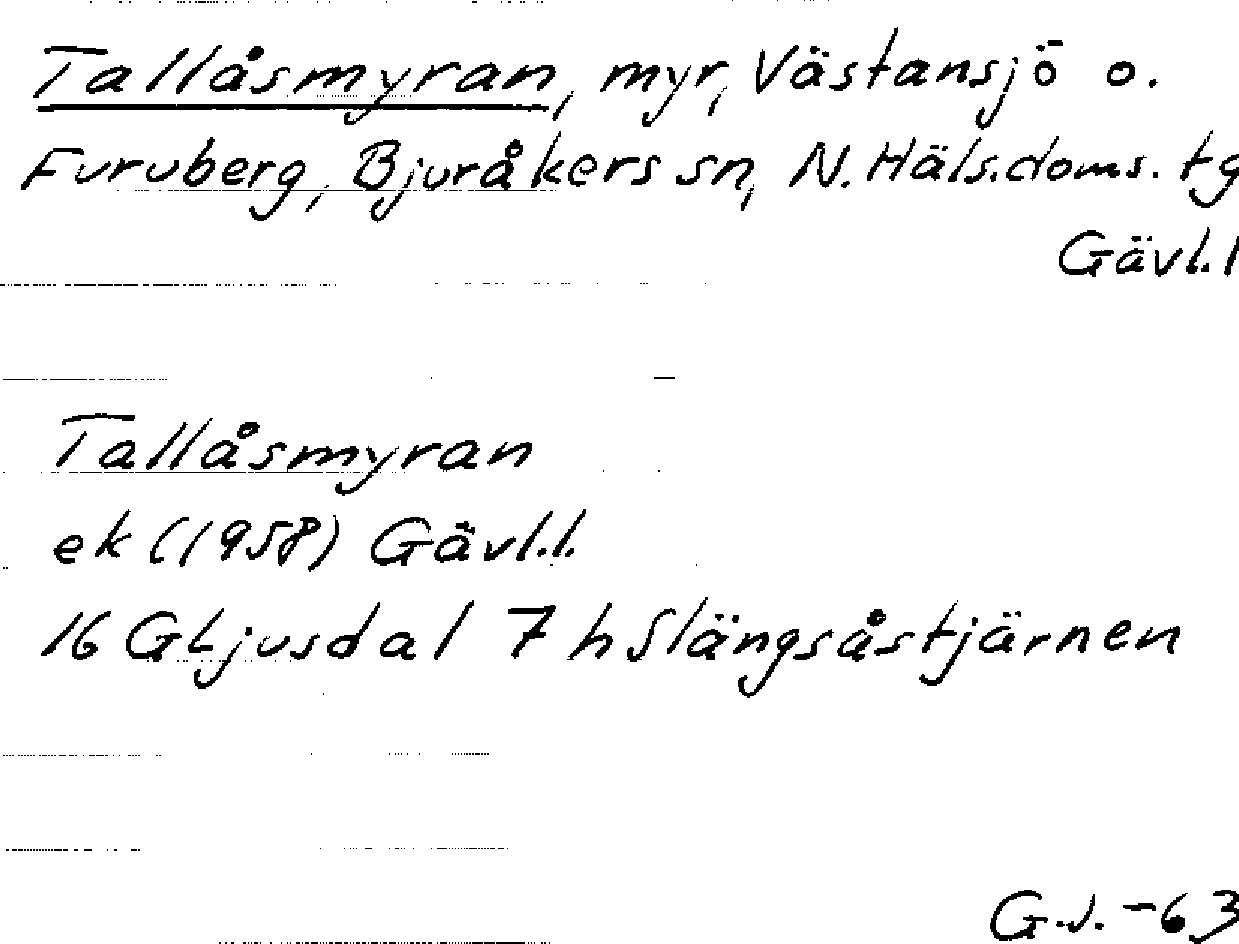 Tallåsmyran, myr, Västansjö o.
Furuberg, Bjuråkers sn, N. Häls.doms. tg
Gävl.l
Tallåsmyran
ek (1958) Gävl.l.
16 G Ljusdal 7 h Slängsåstjärnen
G.J. -63